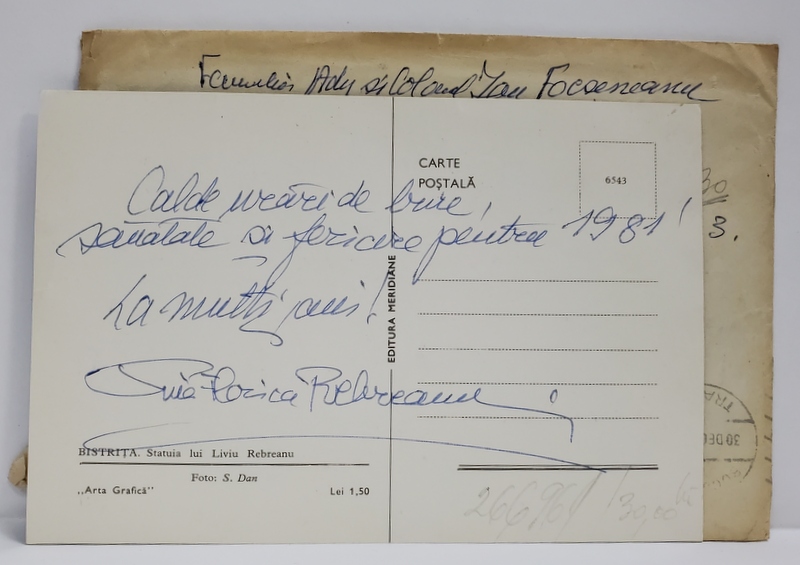 Familiei Ady si Colonel Jan Focseneanu
3.
CARTE
POȘTALĂ
6543
Calde urări de bine,
sănătate și fericire pentru 1981!
La mulți ani!
Puia-Florica Rebreanu
EDITURA MERIDIANE
BISTRIȚA. Statuia lui Liviu Rebreanu
Foto: S. Dan
„Arta Grafică”
Lei 1,50
30 DEC